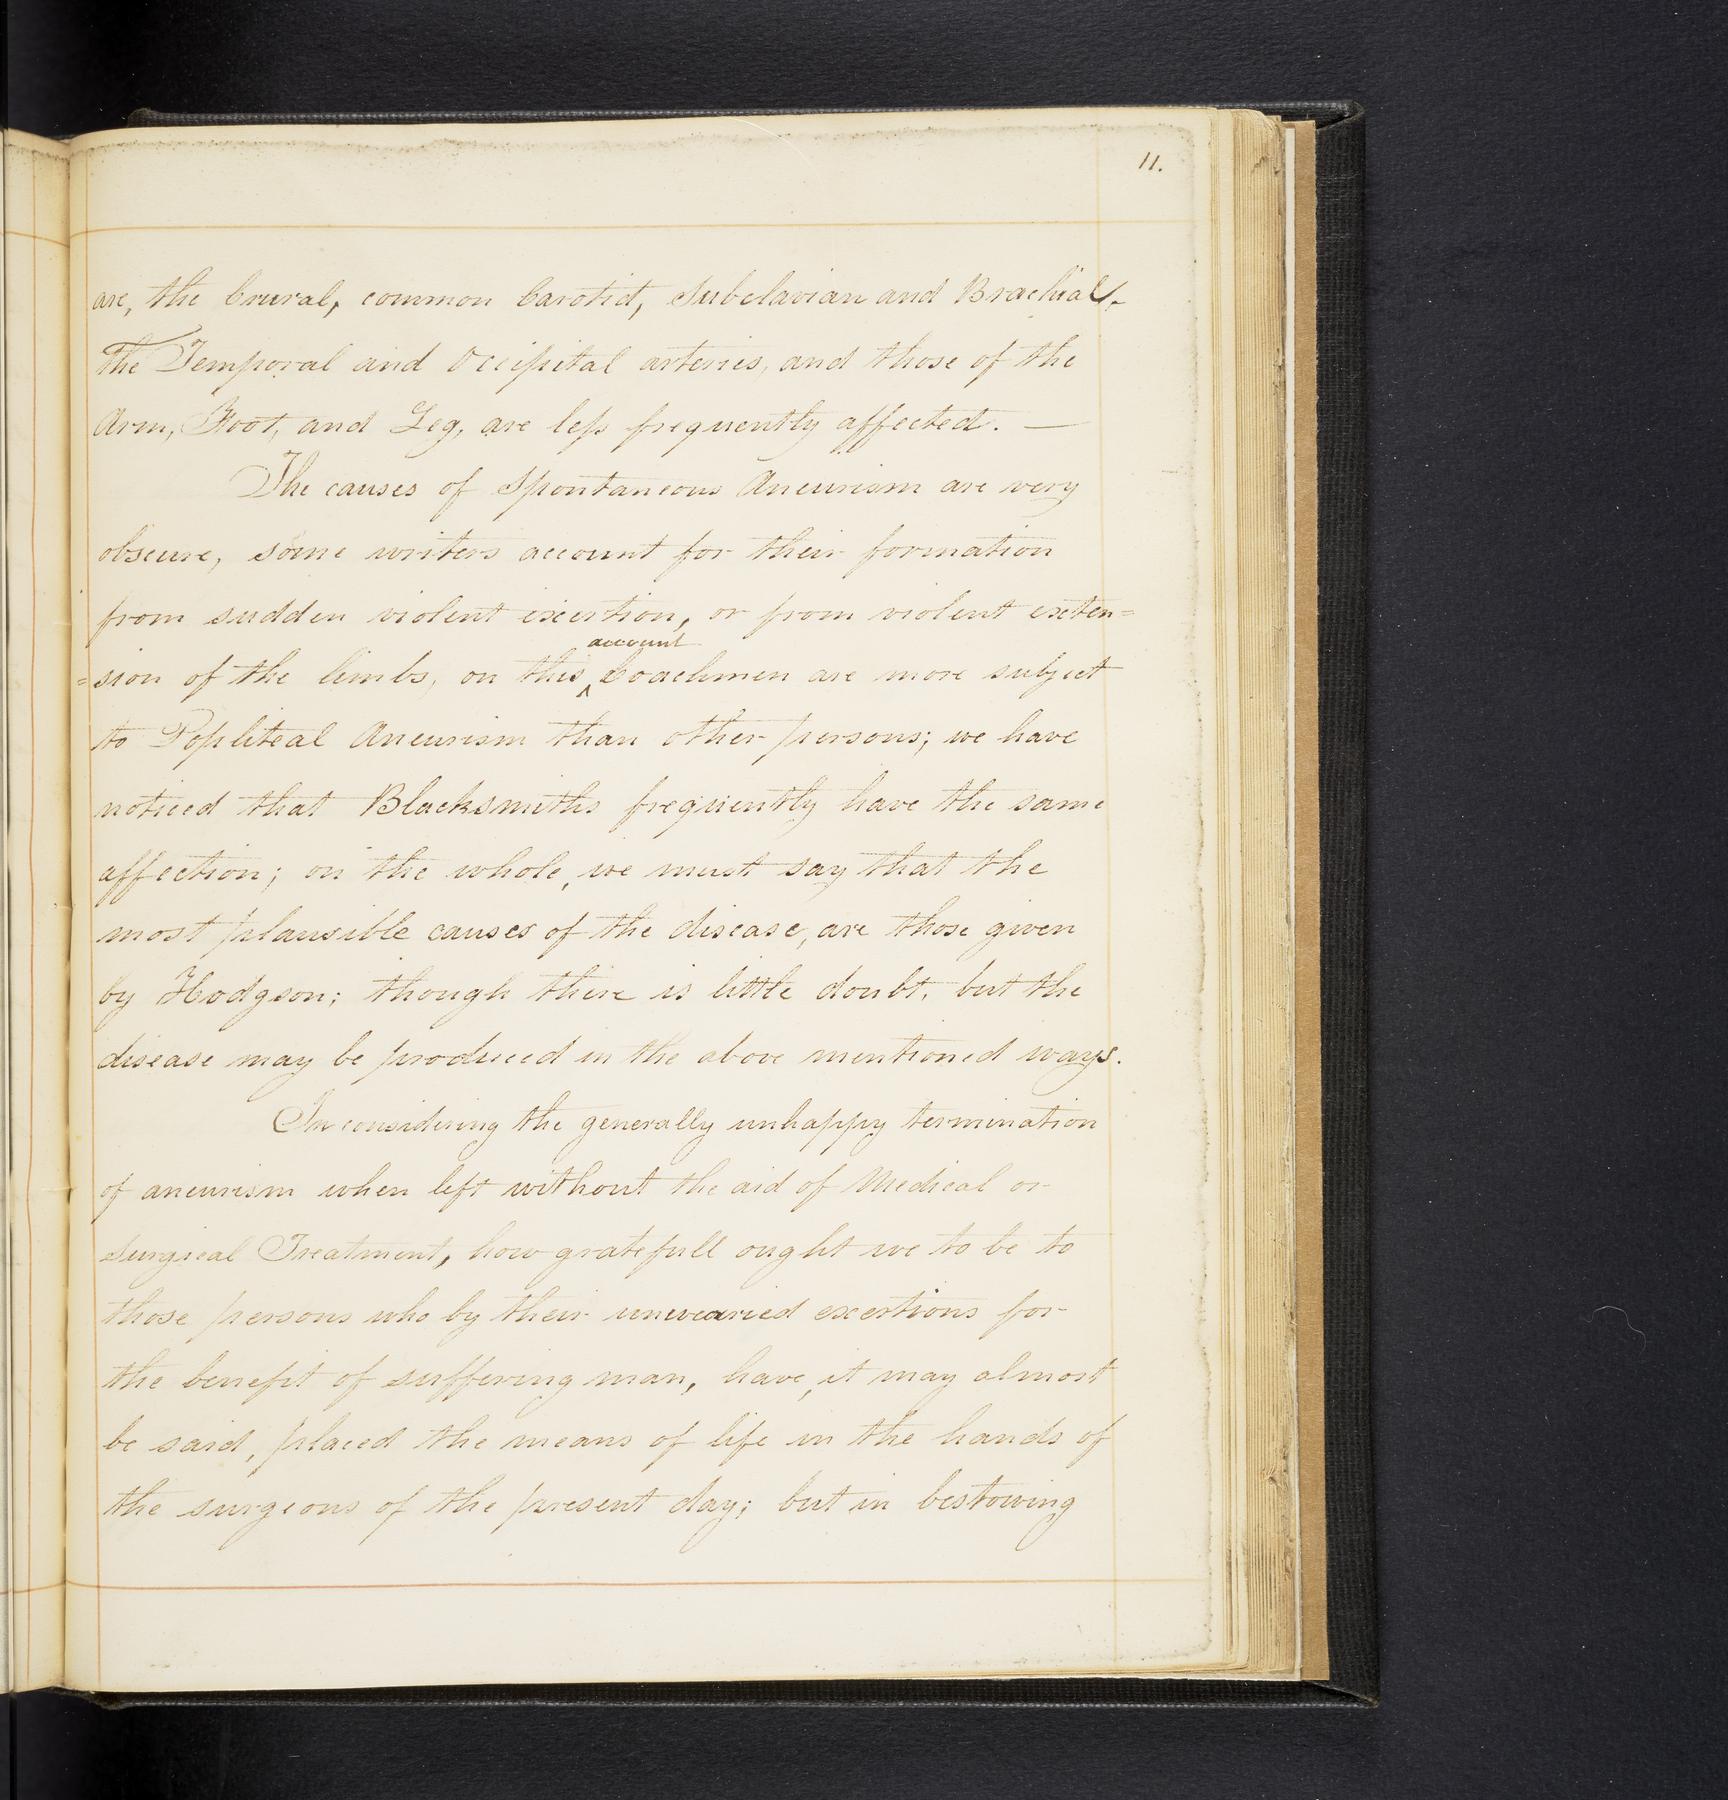 11.
are, the Crural, common Carotid, Subclavian and Brachial.
The Temporal and Occipital arteries, and those of the
Arm, Foot, and Leg, are less frequently affected. —
The causes of Spontaneous Aneurism are very
obscure, some writers account for their formation
from sudden violent exertion, or from violent exten=
account
=sion of the limbs, on this ‸ Coachmen are more subject
to Popliteal Aneurism than other persons; we have
noticed that Blacksmiths frequently have the same
affection; on the whole, we must say that the
most plausible causes of the disease, are those given
by Hodgson; though there is little doubt, but the
disease may be produced in the above mentioned ways.
In considering the generally unhappy termination
of aneurism when left without the aid of Medical or
Surgical Treatment, how gratefull ought we to be to
those persons who by their unwearied exertions for
the benefit of suffering man, have, it may almost
be said, placed the means of life in the hands of
the surgeons of the present day; but in bestowing